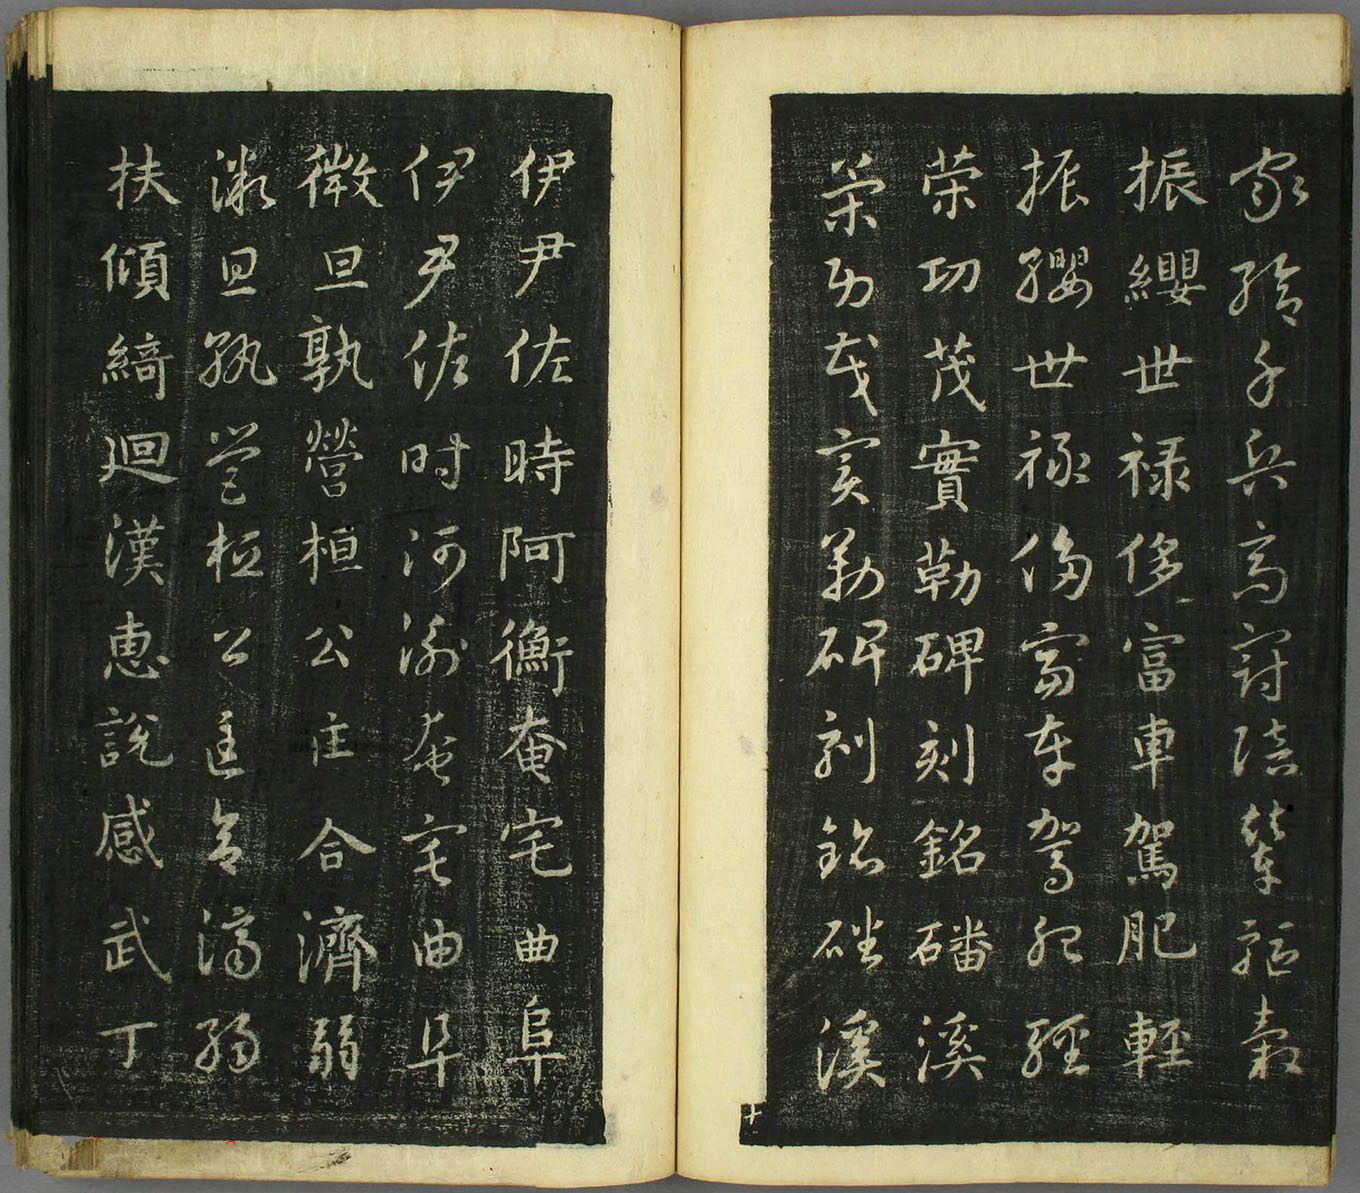 家給千兵高冠陪輦驅轂
振纓世禄侈富車駕肥輕
振纓世禄侈富車駕肥輕
策功茂實勒碑刻銘磻溪
策功茂實勒碑刻銘磻溪
十
伊尹佐時阿衡奄宅曲阜
伊尹佐時阿衡奄宅曲阜
微旦孰營桓公匡合濟弱
微旦孰營桓公匡合濟弱
扶傾綺迴漢惠說感武丁